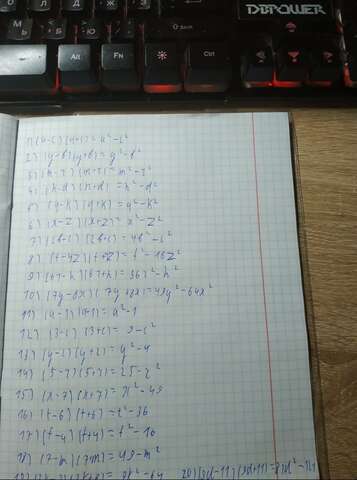 DBPOWER
Alt
Fn
Ctrl
1) (a-c)(a+c)=a²-c²
2) (y-b)(y+b)=y²-b²
3) (m-r)(m+r)=m²-r²
4) (h-d)(h+d)=h²-d²
5) (y-k)(y+k)=y²-k²
6) (x-z)(x+z)=x²-z²
7) (2b-c)(2b+c)=4b²-c²
8) (t-4z)(t+4z)=t²-16z²
9) (6r-h)(6r+h)=36r²-h²
10) (7y-8x)(7y+8x)=49y²-64x²
11) (a-1)(a+1)=a²-1
12) (3-c)(3+c)=9-c²
13) (y-2)(y+2)=y²-4
14) (5-z)(5+z)=25-z²
15) (x-7)(x+7)=x²-49
16) (t-6)(t+6)=t²-36
17) (t-4)(t+4)=t²-16
18) (7-m)(7+m)=49-m²
20) (9d-11)(9d+11)=81d²-121